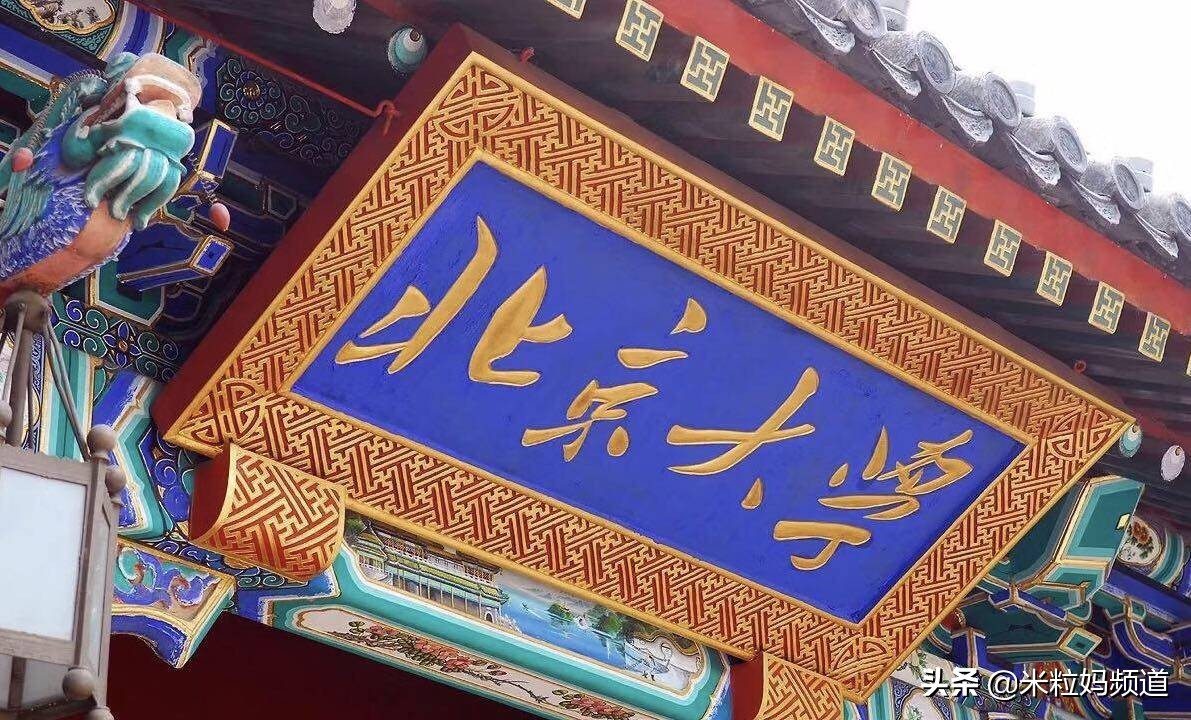 北京大学
头条 @米粒妈频道